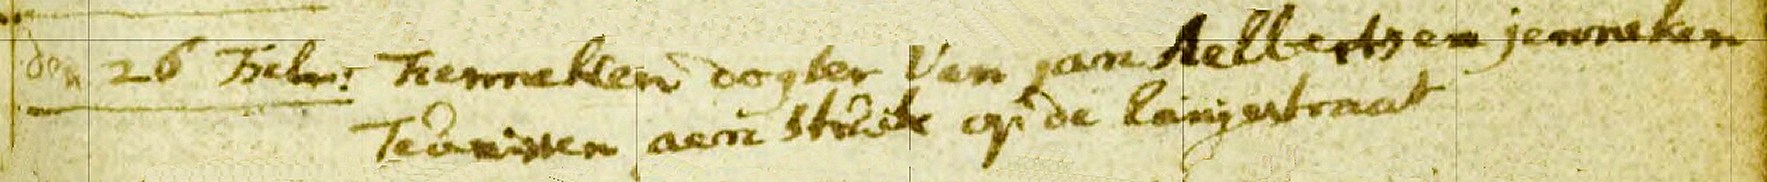 den 26 Febr: Henneken dogter Van jan Aelbertsen jenneken
Teunissen aen op de langestraat